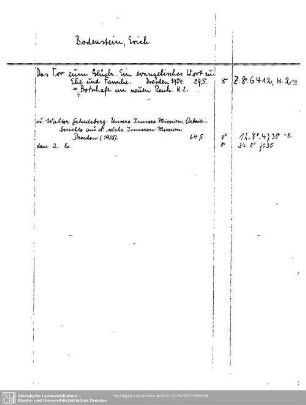 Bodenstein, Erich
Das Tor zum Glück. Ein evangelisches Wort zu
Ehe und Familie. Dresden 1954. 29 S. 8° Z. 8° 6412, H. 2
= Botschaft im neuen H. 2.
u. Walter Schadeberg: Unsere Innere Mission. Arbeits-
berichte aus d. sächs. Inneren Mission.
Dresden (1955). 64 S 8° 12. 8° 4738
dass. 2. Ex. 8°
Sächsische Landesbibliothek -
Staats- und Universitätsbibliothek Dresden